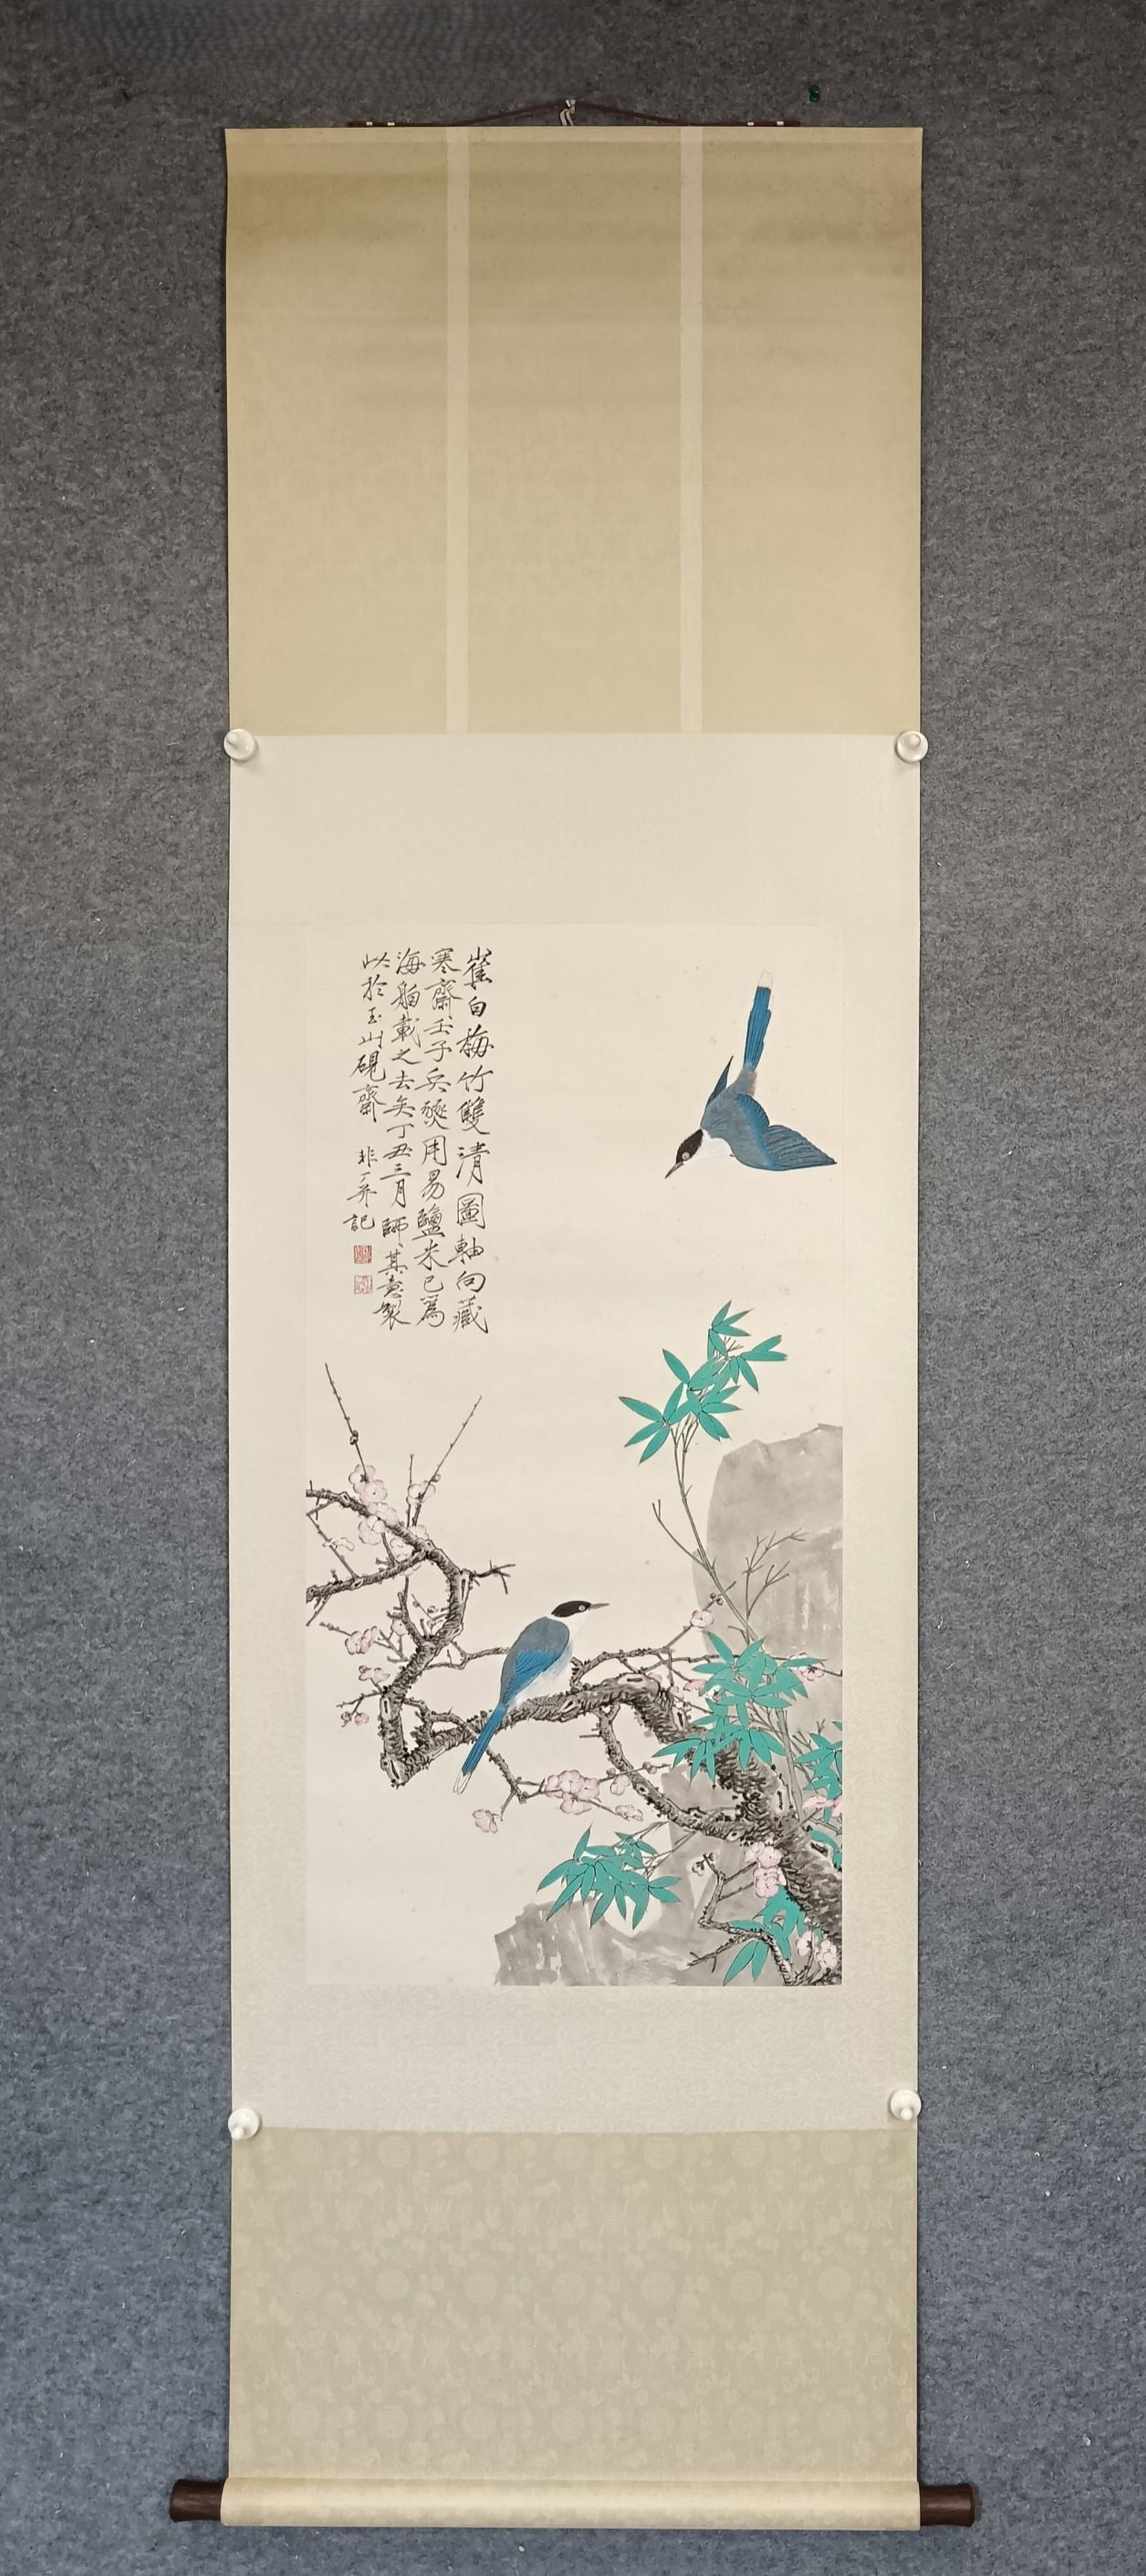 崔白梅竹雙清圖軸向藏
寒齋壬子兵燹用易鹽米已為
海舶載之去矣丁丑三月師其意製
此於玉山硯齋 非厂記